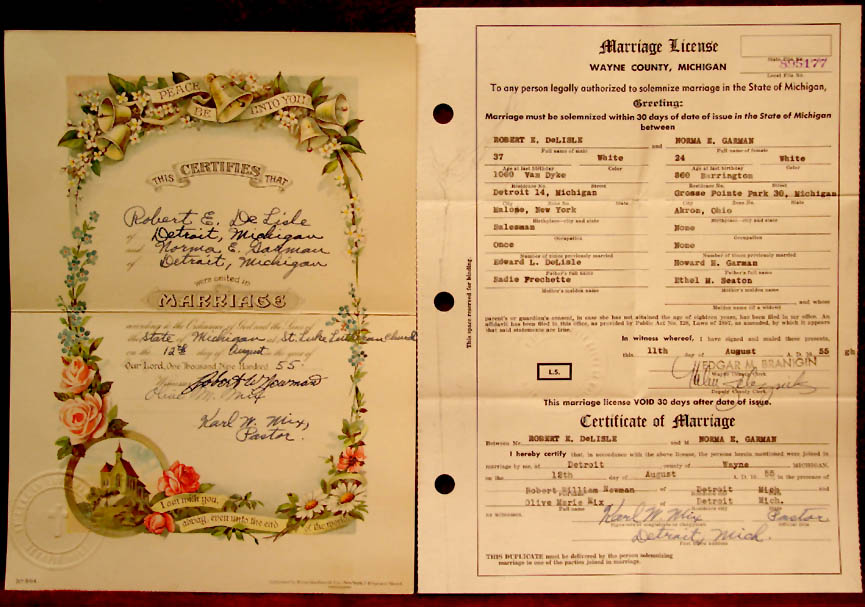 PEACE BE UNTO YOU
THIS CERTIFIES THAT
Robert E. DeLisle
of Detroit, Michigan
and Norma E. Garman
of Detroit, Michigan
were united in
MARRIAGE
according to the Ordinance of God and the Laws of
the State of Michigan at St. Luke Lutheran Church
on the 12th day of August in the year of
Our Lord, One Thousand Nine Hundred 55.
Witnesses Robert W. Newman
Olive M. Mix
Karl W. Mix,
Pastor.
I am with you,
alway, even unto the end
of the world
Marriage License
WAYNE COUNTY, MICHIGAN
State File No.
895177
Local File No.
To any person legally authorized to solemnize marriage in the State of Michigan,
Greeting:
Marriage must be solemnized within 30 days of date of issue in the State of Michigan
between
ROBERT E. DeLISLE and NORMA E. GARMAN
Full name of male Full name of female
37 White 24 White
Age at last birthday Color Age at last birthday Color
1060 Van Dyke 860 Barrington
Residence No. Street Residence No. Street
Detroit 14, Michigan Grosse Pointe Park 30, Michigan
City Zone No. State City Zone No. State
Malone, New York Akron, Ohio
Birthplace—city and state Birthplace—city and state
Salesman None
Occupation Occupation
Once None
Number of times previously married Number of times previously married
Edward L. DeLisle Howard H. Garman
Father's full name Father's full name
Sadie Frechette Ethel M. Seaton
Mother's maiden name Mother's maiden name
Maiden name (if a widow) and whose
parent's or guardian's consent, in case she has not attained the age of eighteen years, has been filed in my office. An
affidavit has been filed in this office, as provided by Public Act No. 128, Laws of 1887, as amended, by which it appears
that said statements are true.
In witness whereof, I have signed and sealed these presents,
this 11th day of August A. D. 19 55
EDGAR M. BRANIGIN
Wayne County Clerk
L.S.
Deputy County Clerk
This marriage license VOID 30 days after date of issue.
Certificate of Marriage
Between Mr. ROBERT E. DeLISLE and M NORMA E. GARMAN
I hereby certify that, in accordance with the above license, the persons herein mentioned were joined in
marriage by me, at Detroit county of Wayne MICHIGAN,
on the 12th day of August A. D. 19 55 in the presence of
Robert William Newman of Detroit Mich. and
Full name Residence city State
Olive Marie Mix of Detroit Mich.
Full name Residence city State
as witnesses. Karl W. Mix Pastor
Signature of magistrate or clergyman Official title
Detroit, Mich.
Post Office address
THIS DUPLICATE must be delivered by the person solemnizing
marriage to one of the parties joined in marriage.
This space reserved for binding.